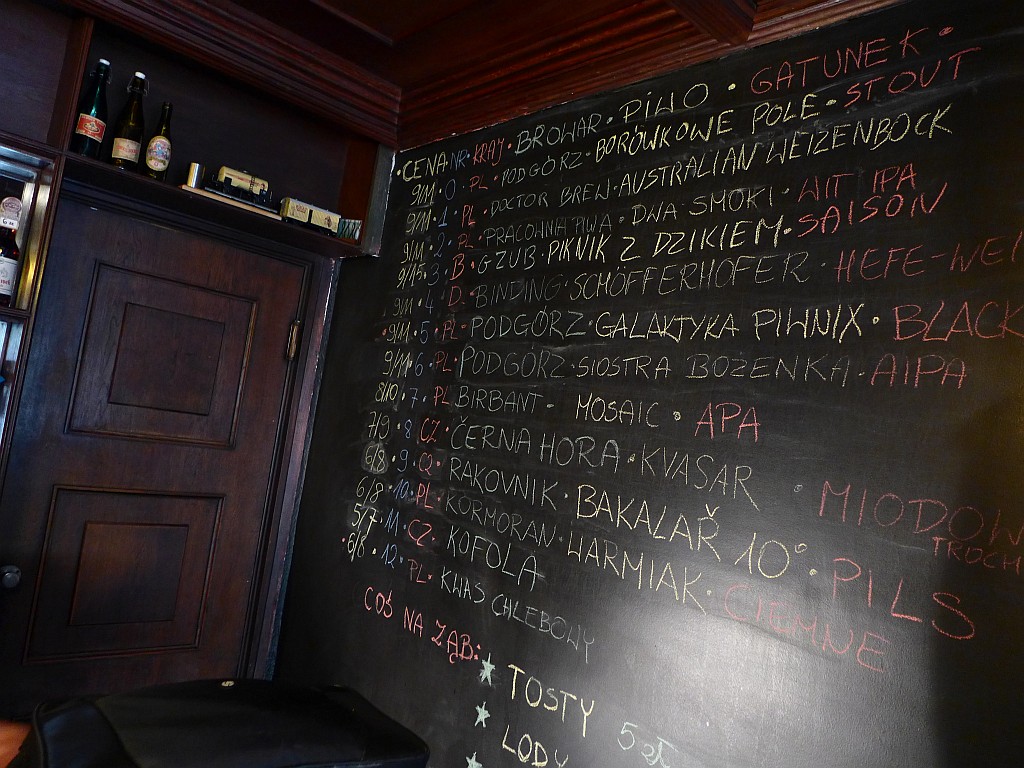 • CENA • NR • KRAJ • BROWAR • PIWO • GATUNEK •
9/11 • 0 • PL • PODGÓRZ • BORÓWKOWE POLE • STOUT
9/11 • 1 • PL • DOCTOR BREW • AUSTRALIAN WEIZENBOCK
9/11 • 2 • PL • PRACOWNIA PIWA • DWA SMOKI • WIT IPA
9/15 • 3 • B • GZUB • PIKNIK Z DZIKIEM • SAISON
9/11 • 4 • D • BINDING • SCHÖFFERHOFER • HEFE-WEI
• 9/11 • 5 • PL • PODGÓRZ • GALAKTYKA PIWNIX • BLACK
9/11 • 6 • PL • PODGÓRZ • SIOSTRA BOŻENKA • AIPA
8/10 • 7 • PL BIRBANT - MOSAIC • APA
7/9 • 8 CZ • ČERNA HORA • KVASAR • MIODOW
TROCH
6/8 • 9 • CZ • RAKOVNIK • BAKALAŘ 10° • PILS
6/8 • 10 • PL • KORMORAN • WARMIAK • CIEMNE
5/7 • 11 • CZ • KOFOLA
• 6/8 • 12 • PL • KWAS CHLEBOWY
COŚ NA ZĄB:
TOSTY 5 zł
LODY